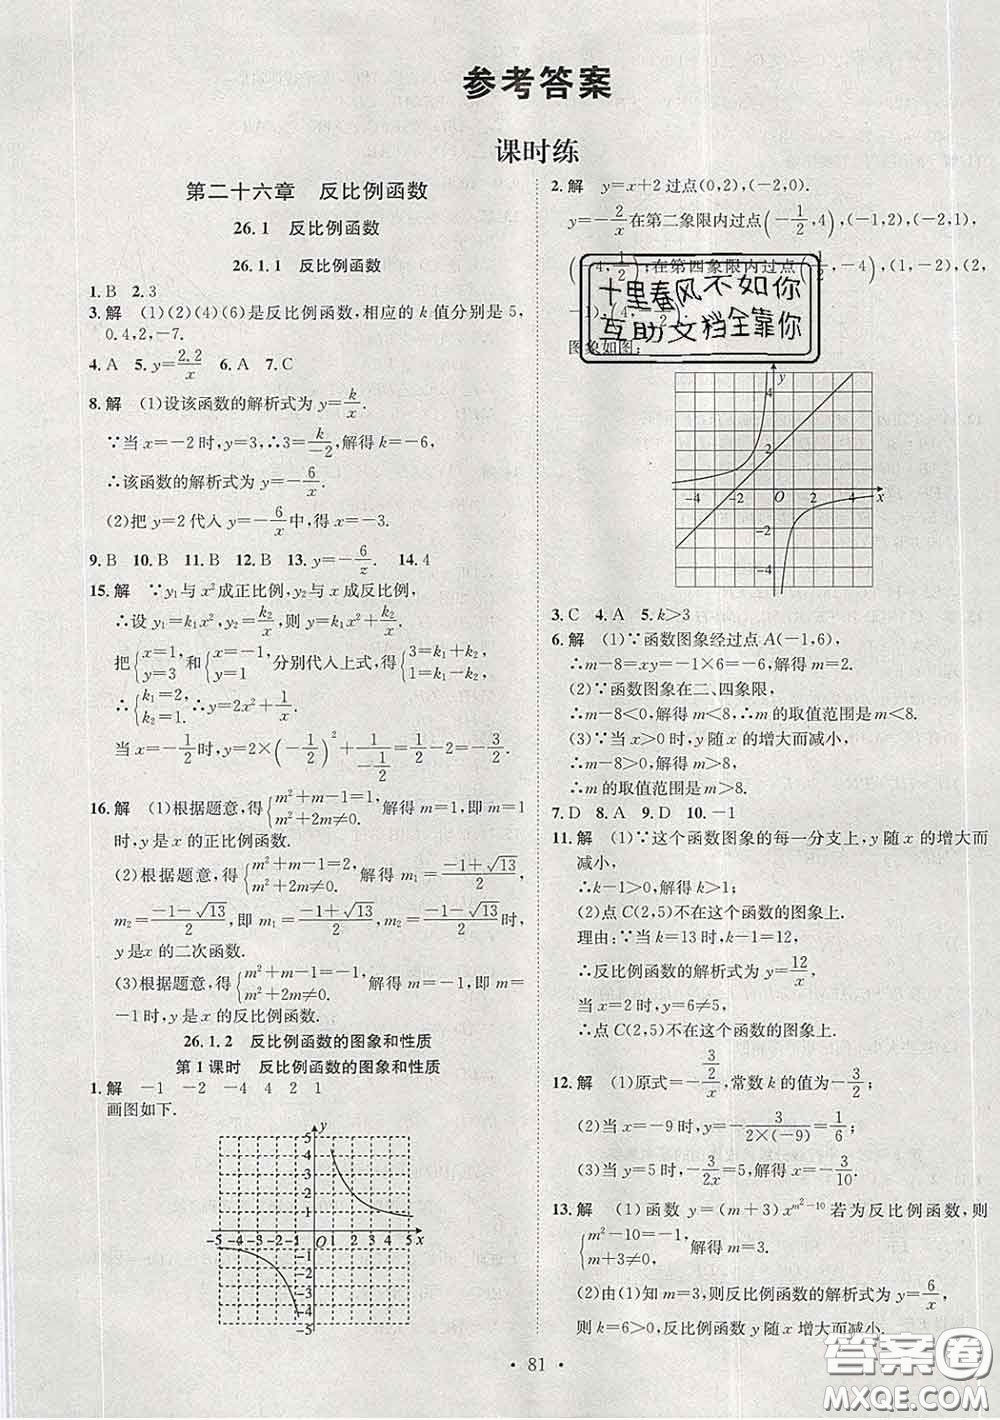 参考答案
课时练
第二十六章　反比例函数
26.1　反比例函数
26.1.1　反比例函数
1. B　2. 3
3. 解　(1)(2)(4)(6)是反比例函数,相应的 k 值分别是 5,
0.4,2,-7.
4. A　5. y=2.2/x　6. A　7. C
8. 解　(1)设该函数的解析式为 y=k/x.
∵当 x=-2 时,y=3,∴3=k/-2,解得 k=-6,
∴该函数的解析式为 y=-6/x.
(2)把 y=2 代入 y=-6/x 中,得 x=-3.
9. B　10. B　11. B　12. B　13. y=-6/z.　14. 4
15. 解　∵y₁与 x²成正比例,y₂与 x 成反比例,
∴设 y₁=k₁x²,y₂=k₂/x,则 y=k₁x²+k₂/x.
把{x=1, y=3 和{x=-1, y=1 分别代入上式,得{3=k₁+k₂ 1=k₁-k₂,
∴{k₁=2, k₂=1. ∴y=2x²+1/x.
当 x=-1/2时,y=2×(-1/2)²+1/(-1/2)=1/2-2=-3/2.
16. 解　(1)根据题意,得{m²+m-1=1, m²+2m≠0. 解得 m=1,即 m=1
时,y是 x 的正比例函数.
(2)根据题意,得{m²+m-1=2, m²+2m≠0. 解得 m₁=(-1+√13)/2,
m₂=(-1-√13)/2,即 m=(-1+√13)/2或 m=(-1-√13)/2时,
y是x 的二次函数.
(3)根据题意,得{m²+m-1=-1, m²+2m≠0. 解得 m=-1,即 m=
-1时,y是 x 的反比例函数.
26.1.2　反比例函数的图象和性质
第 1 课时　反比例函数的图象和性质
1. 解　-1　-2　-4　4　2　1
画图如下.
y
5
4
3
2
1
-5 -4 -3 -2 -1 O 1 2 3 4 5 x
-1
-2
-3
-4
-5
2. 解　y=x+2 过点(0,2),(-2,0).
y=-2/x在第二象限内过点(-1/2,4),(-1,2),(-2,1),
(-4,1/2);在第四象限内过点(1/2,-4),(1,-2),(2,
-1),(4,-1/2).
图象如图:
十里春风不如你
互助文档全靠你
y
2
-4 -2 O 2 4 x
-2
-4
3. C　4. A　5. k>3
6. 解　(1)∵函数图象经过点 A(-1,6),
∴m-8=xy=-1×6=-6,解得 m=2.
(2)∵函数图象在二、四象限,
∴m-8<0,解得 m<8,∴m 的取值范围是 m<8.
(3)∵当 x>0 时,y 随 x 的增大而减小,
∴m-8>0,解得 m>8,
∴m 的取值范围是 m>8.
7. D　8. A　9. D　10. -1
11. 解　(1)∵这个函数图象的每一分支上,y 随 x 的增大而
减小,
∴k-1>0,解得 k>1;
(2)点 C(2,5)不在这个函数的图象上.
理由:∵当 k=13 时,k-1=12,
∴反比例函数的解析式为 y=12/x,
当 x=2 时,y=6≠5,
∴点 C(2,5)不在这个函数的图象上.
12. 解　(1)原式=-(3/2)/x,常数 k 的值为-3/2;
(2)当 x=-9 时,y=-3/(2×(-9))=1/6;
(3)当 y=5 时,-3/2x=5,解得 x=-3/10.
13. 解　(1)函数 y=(m+3)x^(m²-10)若为反比例函数,则
{m²-10=-1, m+3≠0. 解得 m=3.
(2)由(1)知 m=3,则反比例函数的解析式为 y=6/x,
则 k=6>0,反比例函数 y 随 x 的增大而减小.
· 81 ·
答案圈
MXQE.COM